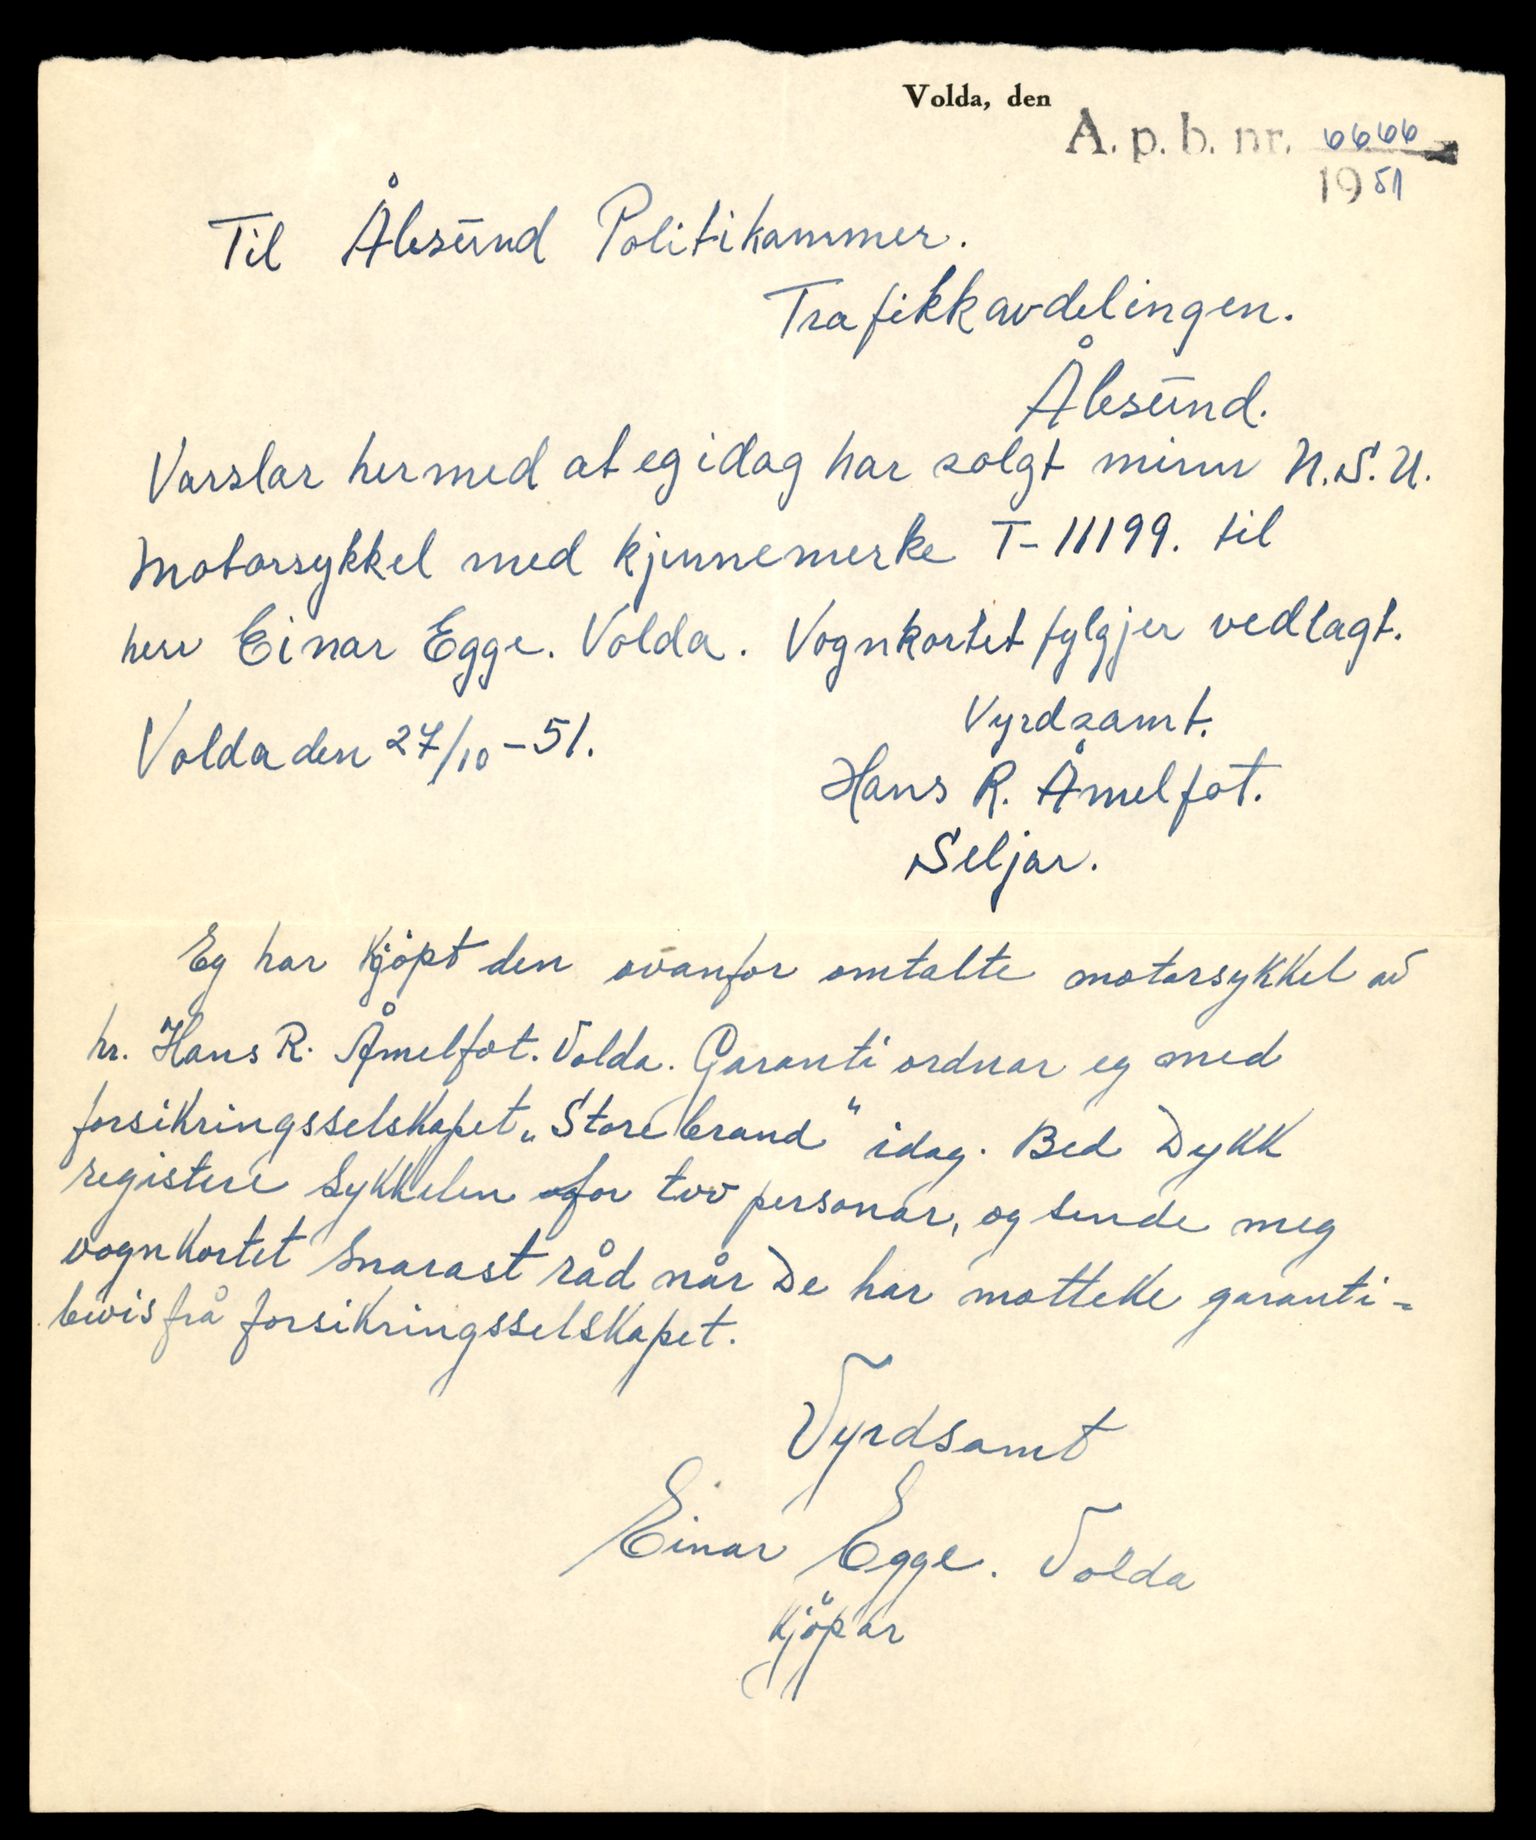 Volda, den
A. p. b. nr. 6666
1951
Til Ålesund Politikammer.
Trafikkavdelingen.
Ålesund.
Varslar hermed at eg idag har solgt minn N.S.U.
Motorsykkel med kjennemerke T-11199. til
herr Einar Egge. Volda. Vognkortet fylgjer vedlagt.
Volda den 27/10-51.
Vyrdsamt.
Hans R. Åmelfot.
Seljar.
Eg har kjöpt den ovanfor omtalte motorsykkel av
hr. Hans R. Åmelfot. Volda. Garanti ordnar eg med
forsikringsselskapet „Storebrand" idag. Bed Dykk
registere sykkelen for tvo personar, og sende meg
vognkortet snarast råd når De har motteke garanti-
bevis frå forsikringsselskapet.
Vyrdsamt
Einar Egge. Volda
Kjöpar